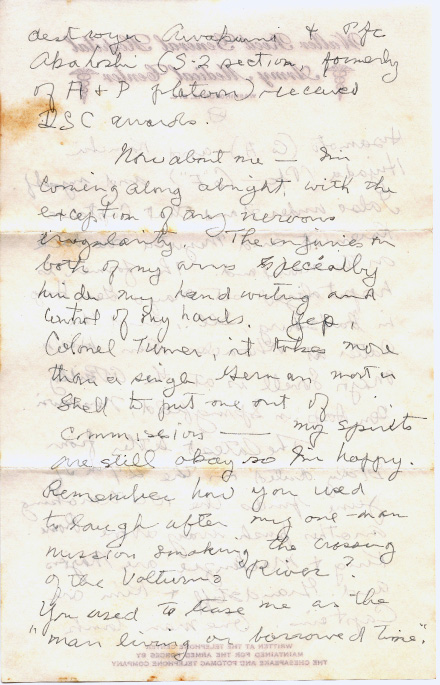 destroyer Awakuni & Pfc
Akahoshi (S-2 section, formerly
of A + P platoon) received
DSC awards.
Now about me — I'm
coming along alright with the
exception of my nervous
irregularity. The injuries in
both of my arms specially
hinder my handwriting and
control of my hands. Yep,
Colonel Turner, it takes more
than a single German mortar
shell to put me out of
commission — my spirits
are still okay so I'm happy.
Remember how you used
to laugh after my one-man
mission smoking the crossing
of the Volturno River?
You used to tease me as the
"man living on borrowed time."
WRITTEN AT THE TELEPHONE CENTER
MAINTAINED FOR THE ARMED FORCES BY
THE CHESAPEAKE AND POTOMAC TELEPHONE COMPANY